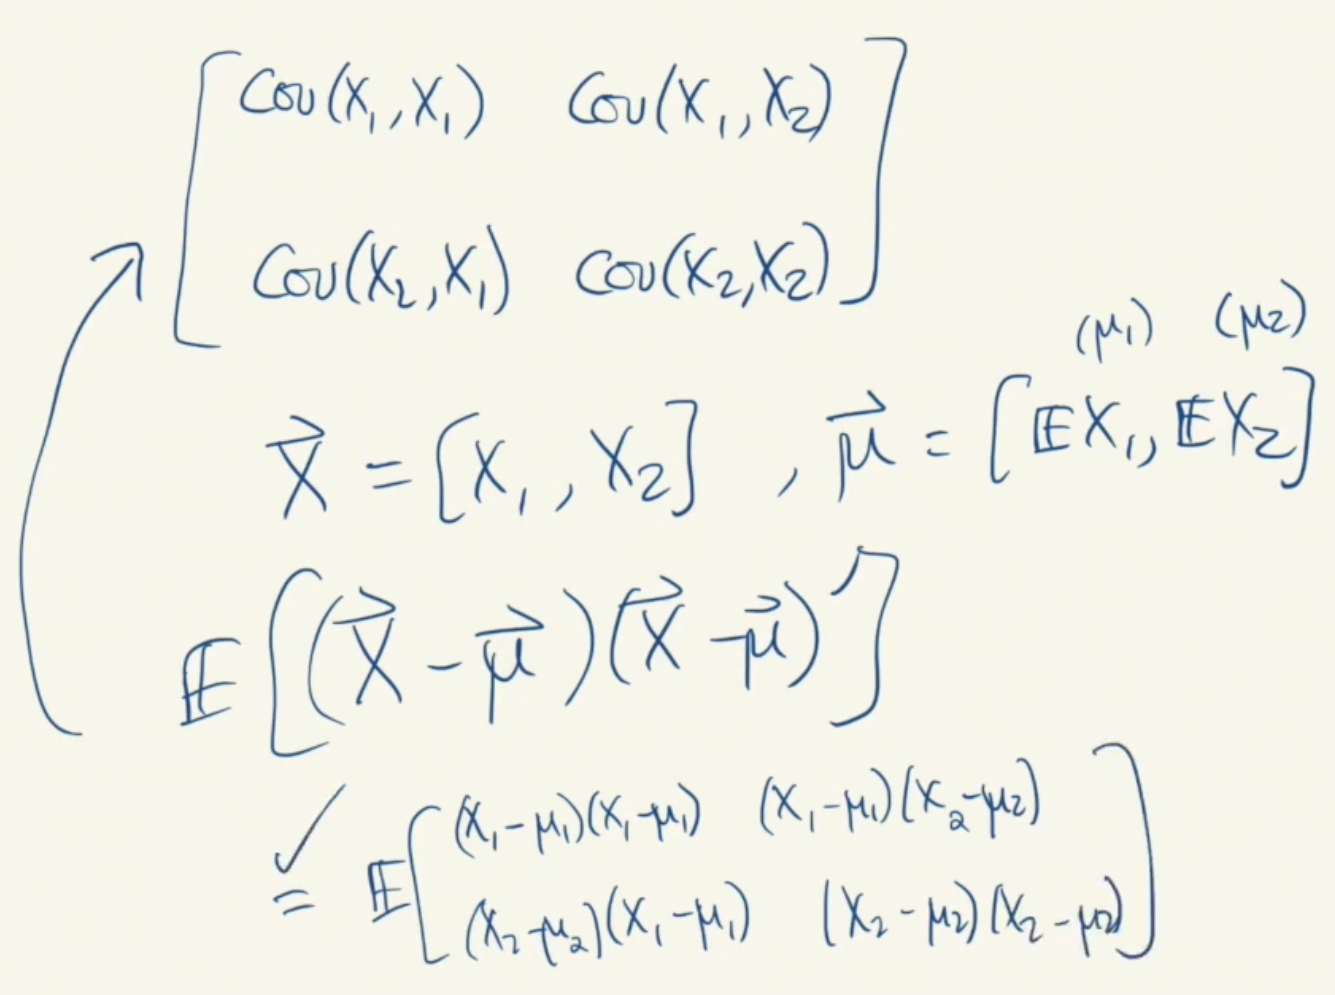 [ Cov(X₁, X₁) Cov(X₁, X₂)
Cov(X₂, X₁) Cov(X₂, X₂) ]
(μ₁) (μ₂)
X⃗ = [X₁, X₂] , μ⃗ = [𝔼X₁, 𝔼X₂]
𝔼[(X⃗ - μ⃗)(X⃗ - μ⃗)′]
✓
= 𝔼[ (X₁ - μ₁)(X₁ - μ₁) (X₁ - μ₁)(X₂ - μ₂)
(X₂ - μ₂)(X₁ - μ₁) (X₂ - μ₂)(X₂ - μ₂) ]